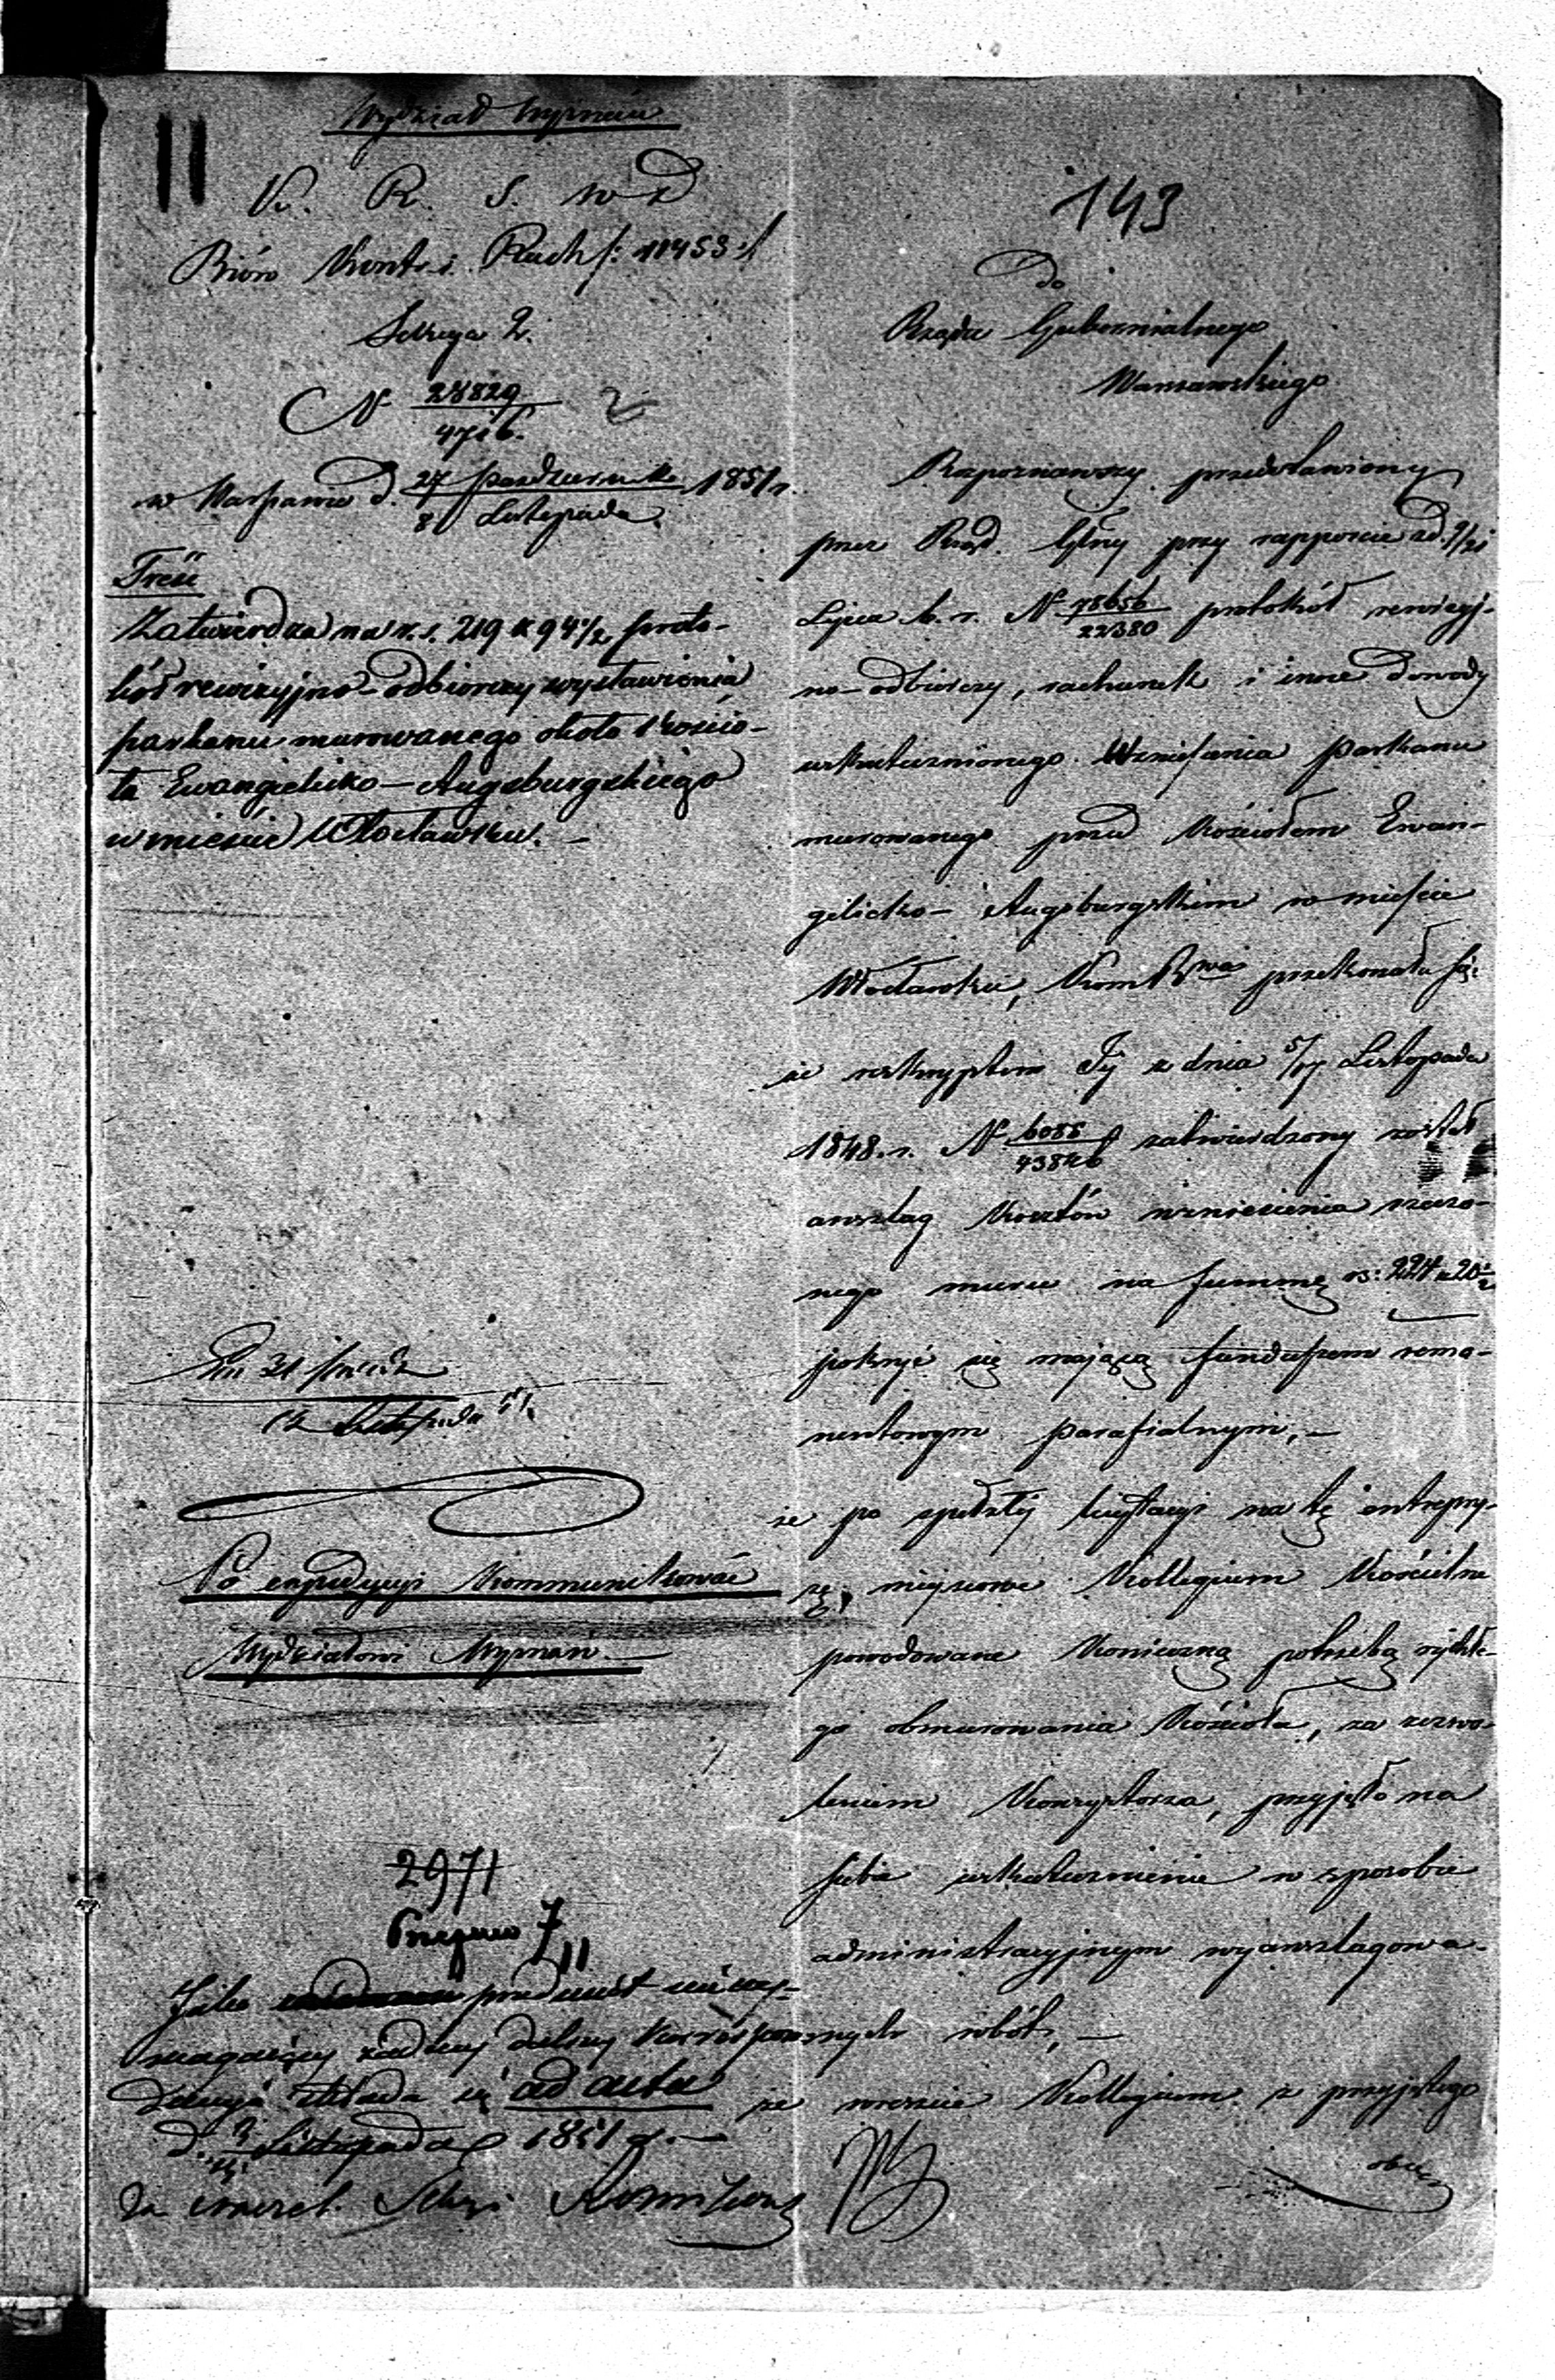 Wydział Wyznań
II
K. R. S. W. D
Bióro Kontr. i Rach /: 11453 :/
Sekcya 2.
N 28829
w Warszawie d. 27 Października / 8 Listopada 1851 r.
Treść
Zatwierdza na r. s. 219 k 94 1/2 proto-
kół rewizyjno-odbiorczy wystawienia
parkanu murowanego około kościo-
ła Ewangielicko-Augsburgskiego
w mieście Włocławku. –
12 Listopada 51.
Po expedycyi kommunikować
Wydziałowi Wyznań. –
2971
Jako przedmiot nie wy-
magający żadnej dalszej korrespon-
dencyi składa się ad acta
d. Listopada 1851 r. –
143
Do
Rządu Gubernialnego
Warszawskiego
Rozpoznawszy przedstawiony
przez Rząd Gbny przy rapporcie z d. 9/21
Lipca b. r. N 78656/22380 protokół rewizyj-
no-odbiorczy, rachunek i inne dowody
uskutecznionego wzniesienia parkanu
murowanego przed Kościołem Ewan-
gelicko-Augsburgskim w mieście
Włocławku, Kom Rwa przekonała się:
że reskryptem Jej z dnia 5/17 Listopada
1848. r. N zatwierdzony został
anszlag kosztów wzniesienia rzeczo-
nego muru na summę rs: 224 k 20 1/2
pokryć się mającą funduszem rema-
nentowym parafialnym, –
że po spełzłej licytacyi na tę entrepry-
zę, miejscowe Kollegium Kościelne
powodowane konieczną potrzebą rychłe-
go obmurowania Kościoła, za zezwo-
leniem Konsystorza, przyjęło na
siebie uskutecznienie w sposobie
administracyjnym wyanszlagowa-
nych robót, –
że wreszcie Kollegium z przyjętego